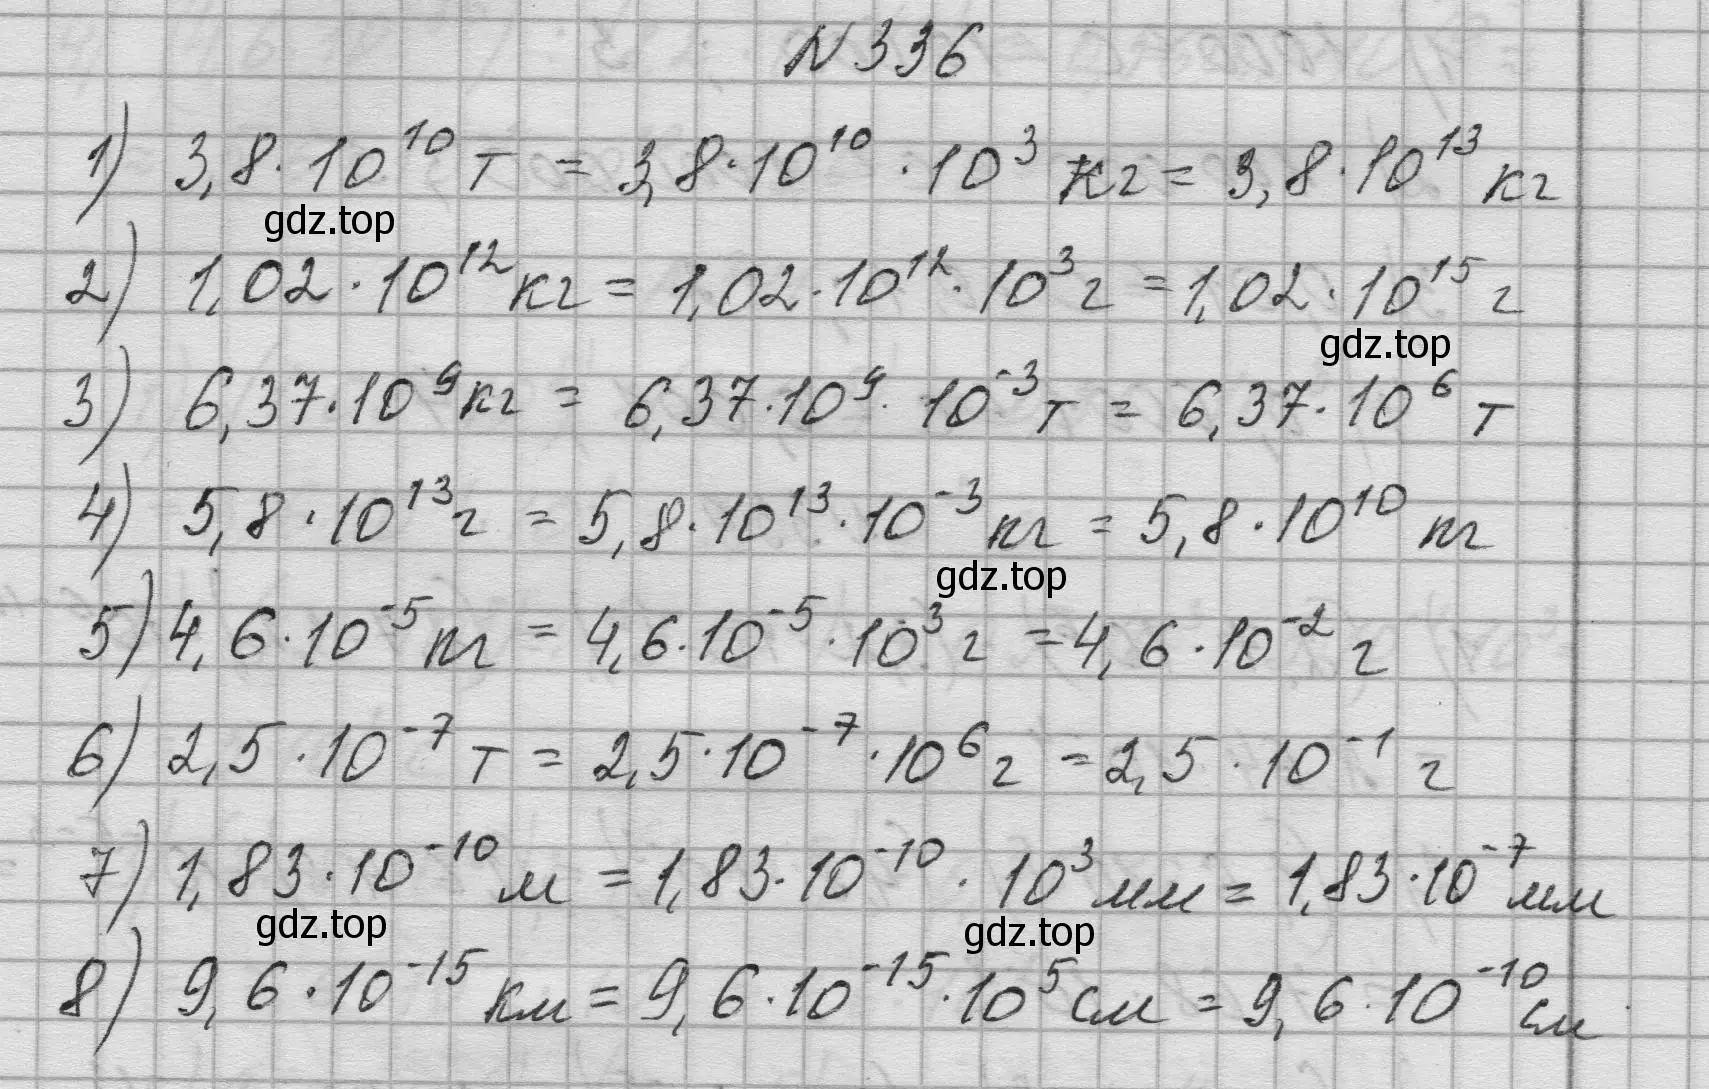 N 336
1) 3,8·10¹⁰ т = 3,8·10¹⁰·10³ кг = 3,8·10¹³ кг
gdz.top
2) 1,02·10¹² кг = 1,02·10¹²·10³ г = 1,02·10¹⁵ г
gdz.top
3) 6,37·10⁹ кг = 6,37·10⁹·10⁻³ т = 6,37·10⁶ т
4) 5,8·10¹³ г = 5,8·10¹³·10⁻³ кг = 5,8·10¹⁰ кг
gdz.top
5) 4,6·10⁻⁵ кг = 4,6·10⁻⁵·10³ г = 4,6·10⁻² г
6) 2,5·10⁻⁷ т = 2,5·10⁻⁷·10⁶ г = 2,5·10⁻¹ г
7) 1,83·10⁻¹⁰ м = 1,83·10⁻¹⁰·10³ мм = 1,83·10⁻⁷ мм
gdz.top gdz.top
8) 9,6·10⁻¹⁵ км = 9,6·10⁻¹⁵·10⁵ см = 9,6·10⁻¹⁰ см